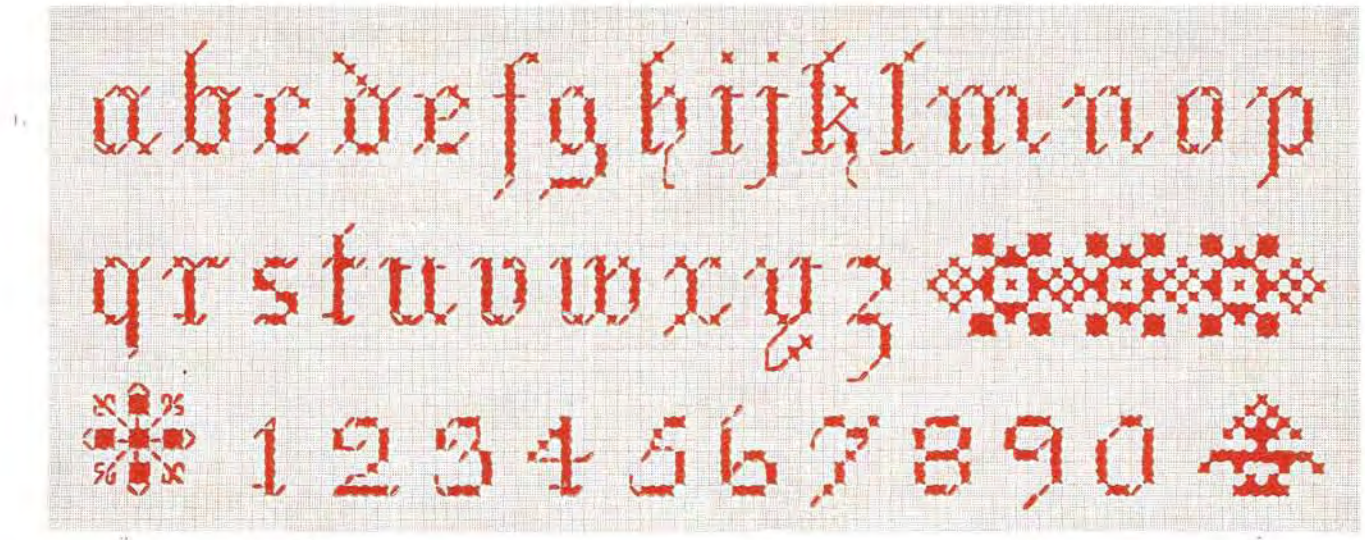 a b c d e f g h i j k l m n o p
q r s t u v w x y z
1 2 3 4 5 6 7 8 9 0